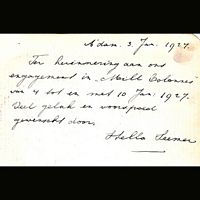 A'dam. 3 Jan. 1927.
Ter herinnering aan ons
engagement in "Mille Colonnes"
van 4 tot en met 10 Jan: 1927.
Veel geluk en voorspoed
gewenscht door,
Hella